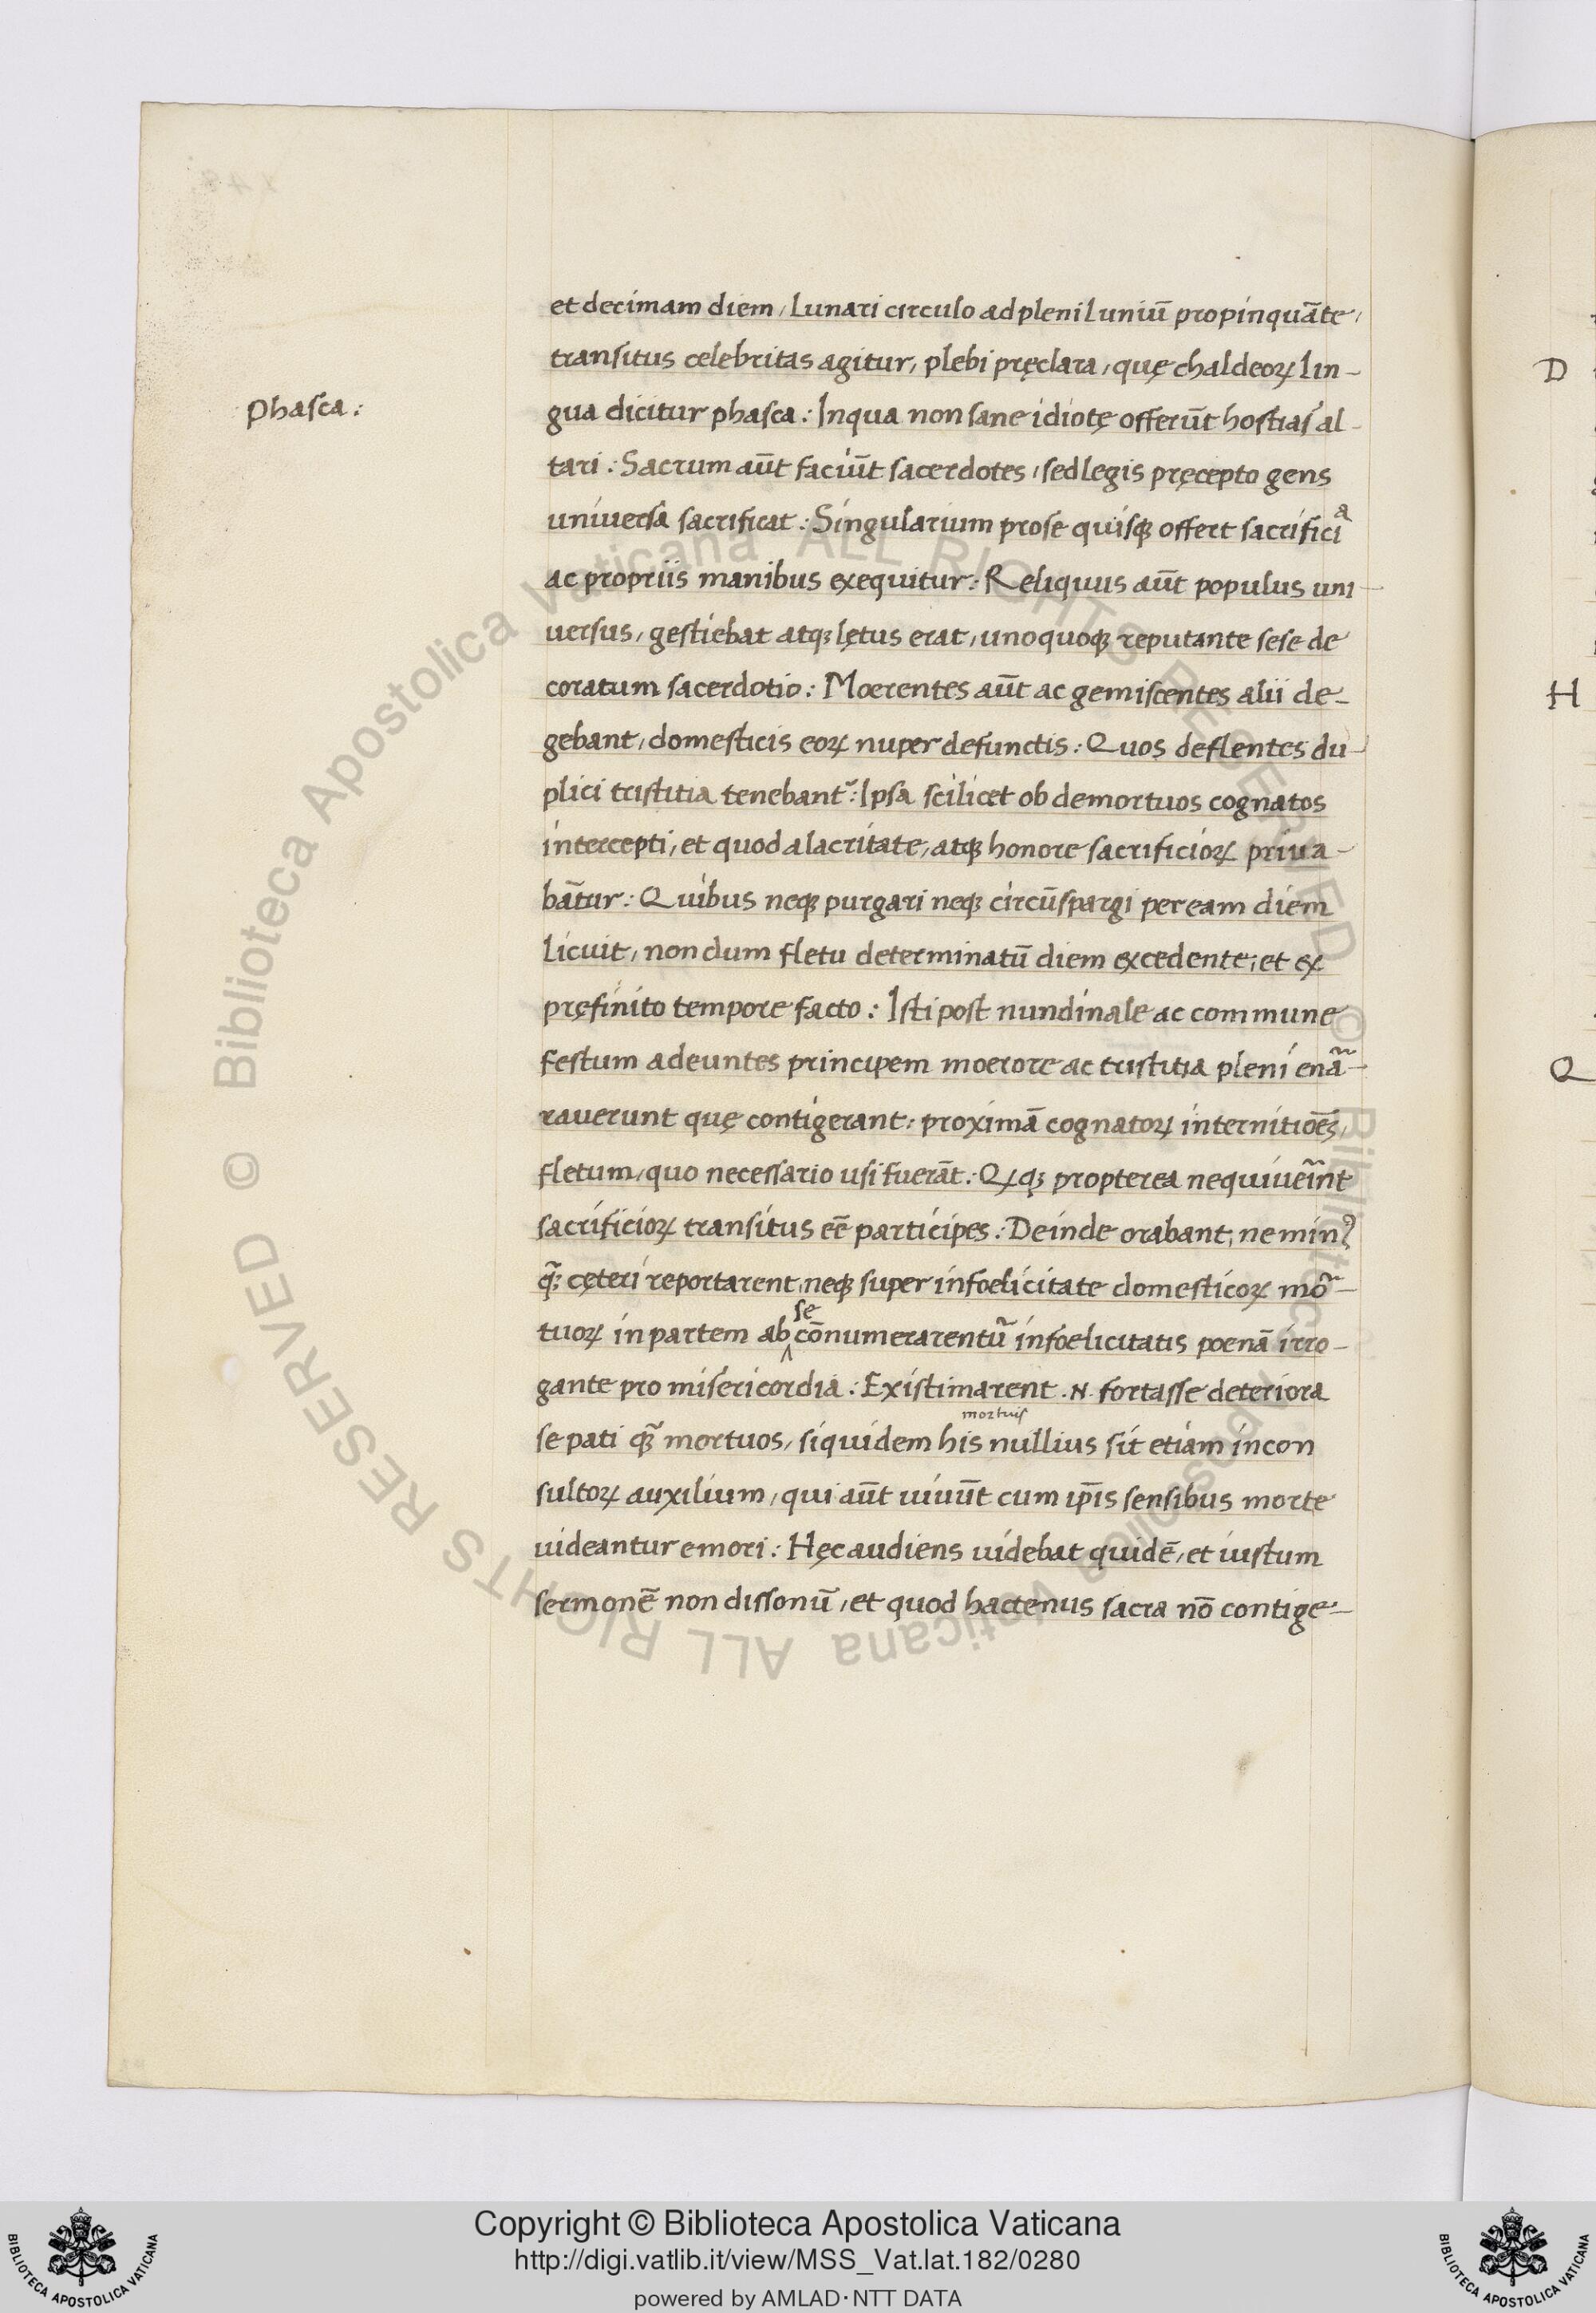 et decimam diem, Lunari circulo ad pleniluniū propinquāte,
transitus celebritas agitur, plebi pręclara, quę chaldeoꝝ lin-
Phasca:
gua dicitur phasca: In qua non sane idiotę offerūt hostias al-
tari: Sacrum aūt faciūt sacerdotes, sed legis pręcepto gens
universa sacrificat: Singularium pro se quisqꝫ offert sacrificia
ac propriis manibus exequitur: Reliquus aūt populus uni-
uersus, gestiebat atqꝫ lętus erat, unoquoqꝫ reputante sese de
coratum sacerdotio: Moerentes aūt ac gemiscentes alii de-
gebant, domesticis eoꝝ nuper defunctis: Quos deflentes du-
plici tristitia tenebant᷑: Ipsa scilicet ob demortuos cognatos
intercepti, et quod alacritate, atqꝫ honore sacrificioꝝ priua-
bāt̄ur: Quibus neqꝫ purgari neqꝫ circūspargi per eam diem
licuit, non dum fletu determinatū diem excedente, et ex
pręfinito tempore facto: Isti post nundinale ac commune
festum adeuntes principem moerore ac tristitia pleni enā-
raverunt quę contigerant: proximā cognatoꝝ internitiōēs,
fletum, quo necessario usi fuerāt: Qꝝqꝫ propterea nequiueīnt
sacrificioꝝ transitus eē participes: Deinde orabant, ne minꝰ
qꝫ̄ cęteri reportarent, neqꝫ super infoelicitate domesticoꝝ mō-
se
tuoꝝ in partem ab cōnumerarentū infoelicitatis poenā irro-
gante pro misericordia: Existimarent .N. fortasse deteriora
mortuis
se pati qꝫ̄ mortuos, siquidem his nullius sit etiam incon
sultoꝝ auxilium, qui aūt uiuūt cum ip̄is sensibus morte
uideantur emori: Hęc audiens uidebat quidē, et iustum
sermonē non dissonū, et quod hactenus sacra nō contige-
D
H
Q
© Biblioteca Apostolica Vaticana ALL RIGHTS RESERVED
© Biblioteca Apostolica Vaticana ALL RIGHTS RESERVED
Copyright © Biblioteca Apostolica Vaticana
http://digi.vatlib.it/view/MSS_Vat.lat.182/0280
powered by AMLAD·NTT DATA
BIBLIOTECA APOSTOLICA VATICANA
BIBLIOTECA APOSTOLICA VATICANA